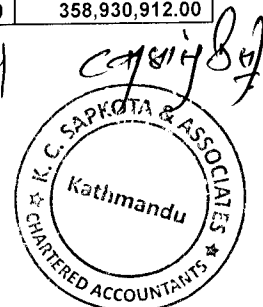 358,930,912.00
K. C. SAPKOTA & ASSOCIATES
Kathmandu
CHARTERED ACCOUNTANTS